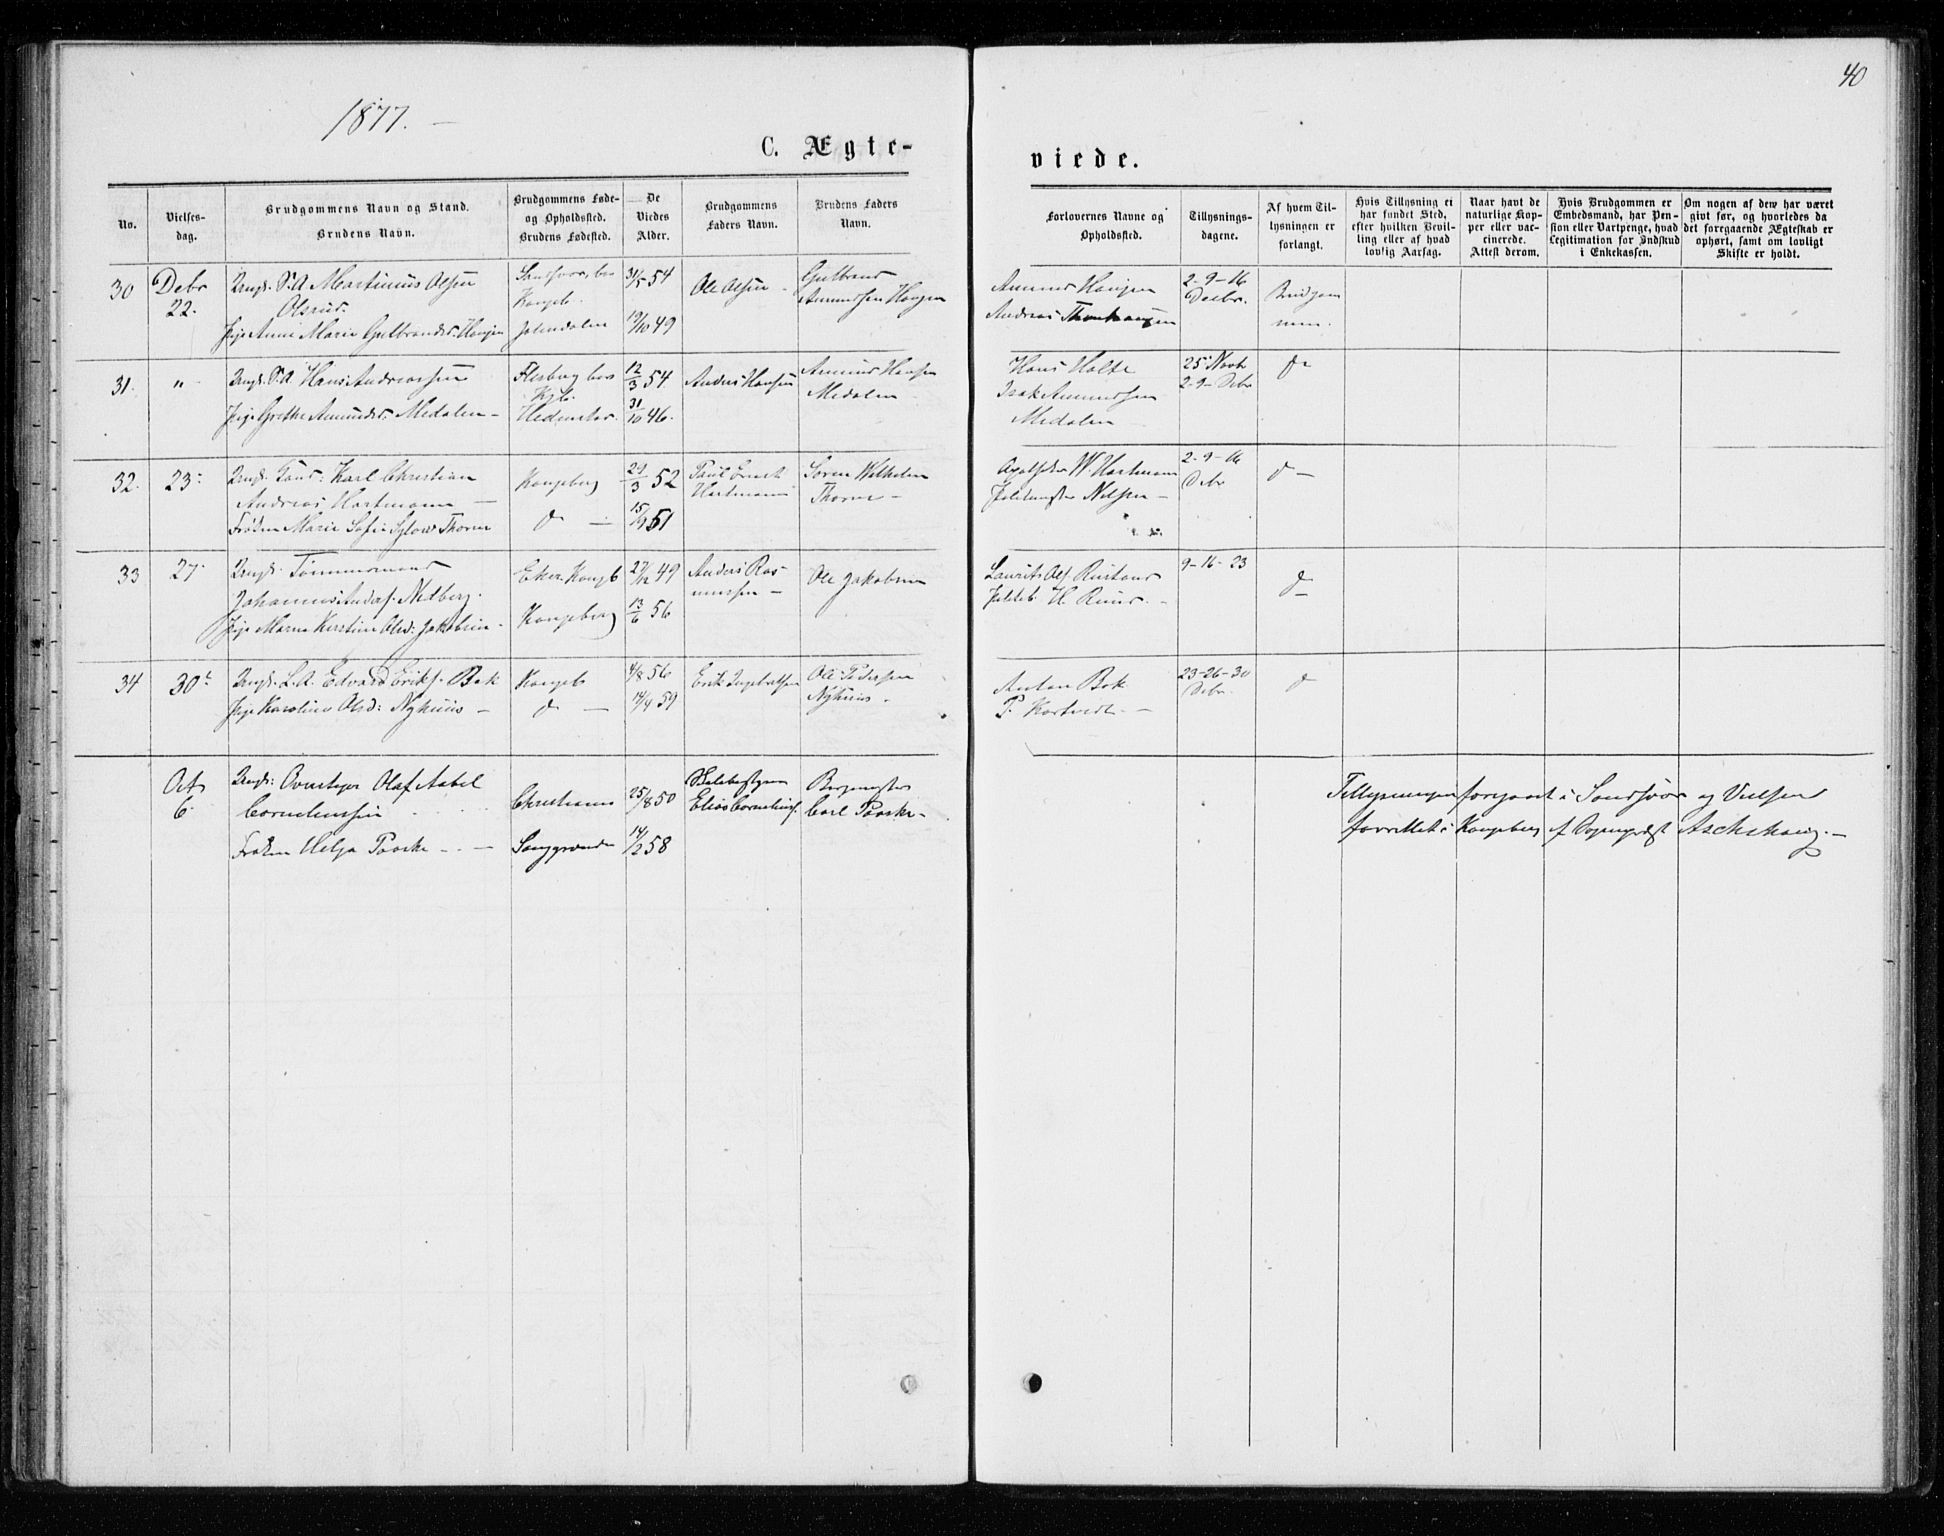 40
1877. —
C. Ægte-
viede.
No.
Vielses-
dag.
Brudgommens Navn og Stand.
Brudens Navn.
Brudgommens Føde-
og Opholdssted.
Brudens Fødested.
De
Viedes
Alder.
Brudgommens
Faders Navn.
Brudens Faders
Navn.
Forlovernes Navne og
Opholdssted.
Tillysnings-
dagene.
Af hvem Til-
lysningen er
forlangt.
Hvis Tillysning ei
har fundet Sted,
efter hvilken Bevil-
ling eller af hvad
lovlig Aarsag.
Naar havt de
naturlige Kop-
per eller vac-
cinerede.
Attest derom.
Hvis Brudgommen er
Embedsmand, har Pen-
sion eller Vartpenge, hvad
Legitimation for Indskud
i Enkekassen.
Om nogen af dem har været
gift før, og hvorledes da
det foregaaende Ægteskab er
ophørt, samt om lovligt
Skifte er holdt.
30
Debr
22.
Ungk. S. A. Martinius Olsen
Olsrud.
Pige Anne Marie Gulbrandsd. Haugen
Sandsvær, bor
Kongsb.
Jondalen
31/5 54
19/10 49
Ole Olsen
Gulbrand
Amundsen Haugen
Amund Haugen
Andreas
2-9-16
Decbr.
Brudgom
men.
31.
"
Ungk. S. A. Hans Anderssen
Pige Grethe Amundsd. Medalen —
Flesberg bor
Kgb.
Hedenstad.
12/3 54
31/10 46.
Anders Hansen
Amund Hansen
Medalen
Hans Holte
Isak Amundsen
Medalen
25 Novb
2-9- Debr
do
32.
23
Ungk. Cand. Karl Christian
Andreas Hartmann —
Frøken Marie Sofie Sylow Thorne
Kongsberg
do —
29/3 52
15/9 51
Paul Ernst
Hartmann
Søren Wilhelm
Thorne —
Apotheker W. Hartmann
Politimester Nilsen —
2-9-16
Debr
do —
33
27
Ungk. Tømmermand
Johannes Anders. Nedberg.
Pige Maren Kirstine Olsd. Jakobsen
Eker Kongsb
Kongsberg
27/12 49
13/6 56
Anders Ras-
mussen —
Ole Jakobsen
Laurits Olsen Rustand
Politib. H. Ruud. —
9-16-23
do —
34
30t
Ungk. L. A. Edvard Eriks. Bek
Pige Karoline Olsd: Nyhuus —
Kongsb
do —
4/8 56
14/4 59
Erik Ingebretsen
Ole Pedersen
Nyhuus.
Anton Bek
P. Kortvedt —
23-26-30
Debr.
do
Oct
6
Ungk: Overstiger Olaf Aabel
Corneliussen
Frøken Helga Paaske — —
Christiania
25/8 50
14/2 58
Skolebestyrer
Elias Corneliuss.
Bergmester
Carl Paaske —
Tillysningen foregaaet i Sandsvær og Vielsen
forrettet i Kongsberg af Sognepræst Aschehoug. —